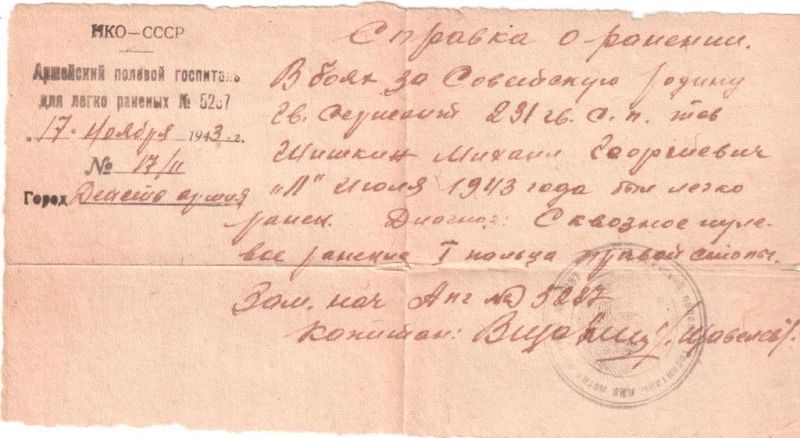 НКО—СССР
Армейский полевой госпиталь
для легко раненых № 5287
„17" ноября 1943 г.
№ 17/н
Город Действ армия
Справка о ранении.
В боях за Советскую родину
гв. Сержант 231 гв. с. п. тов
Шишкин Михаил Георгиевич
"11" Июля 1943 года был легко
ранен. Диагноз: Сквозное пуле-
вое ранение I пальца правой стопы.
Зам. нач № 5287
Капитан: /Щавелев/.